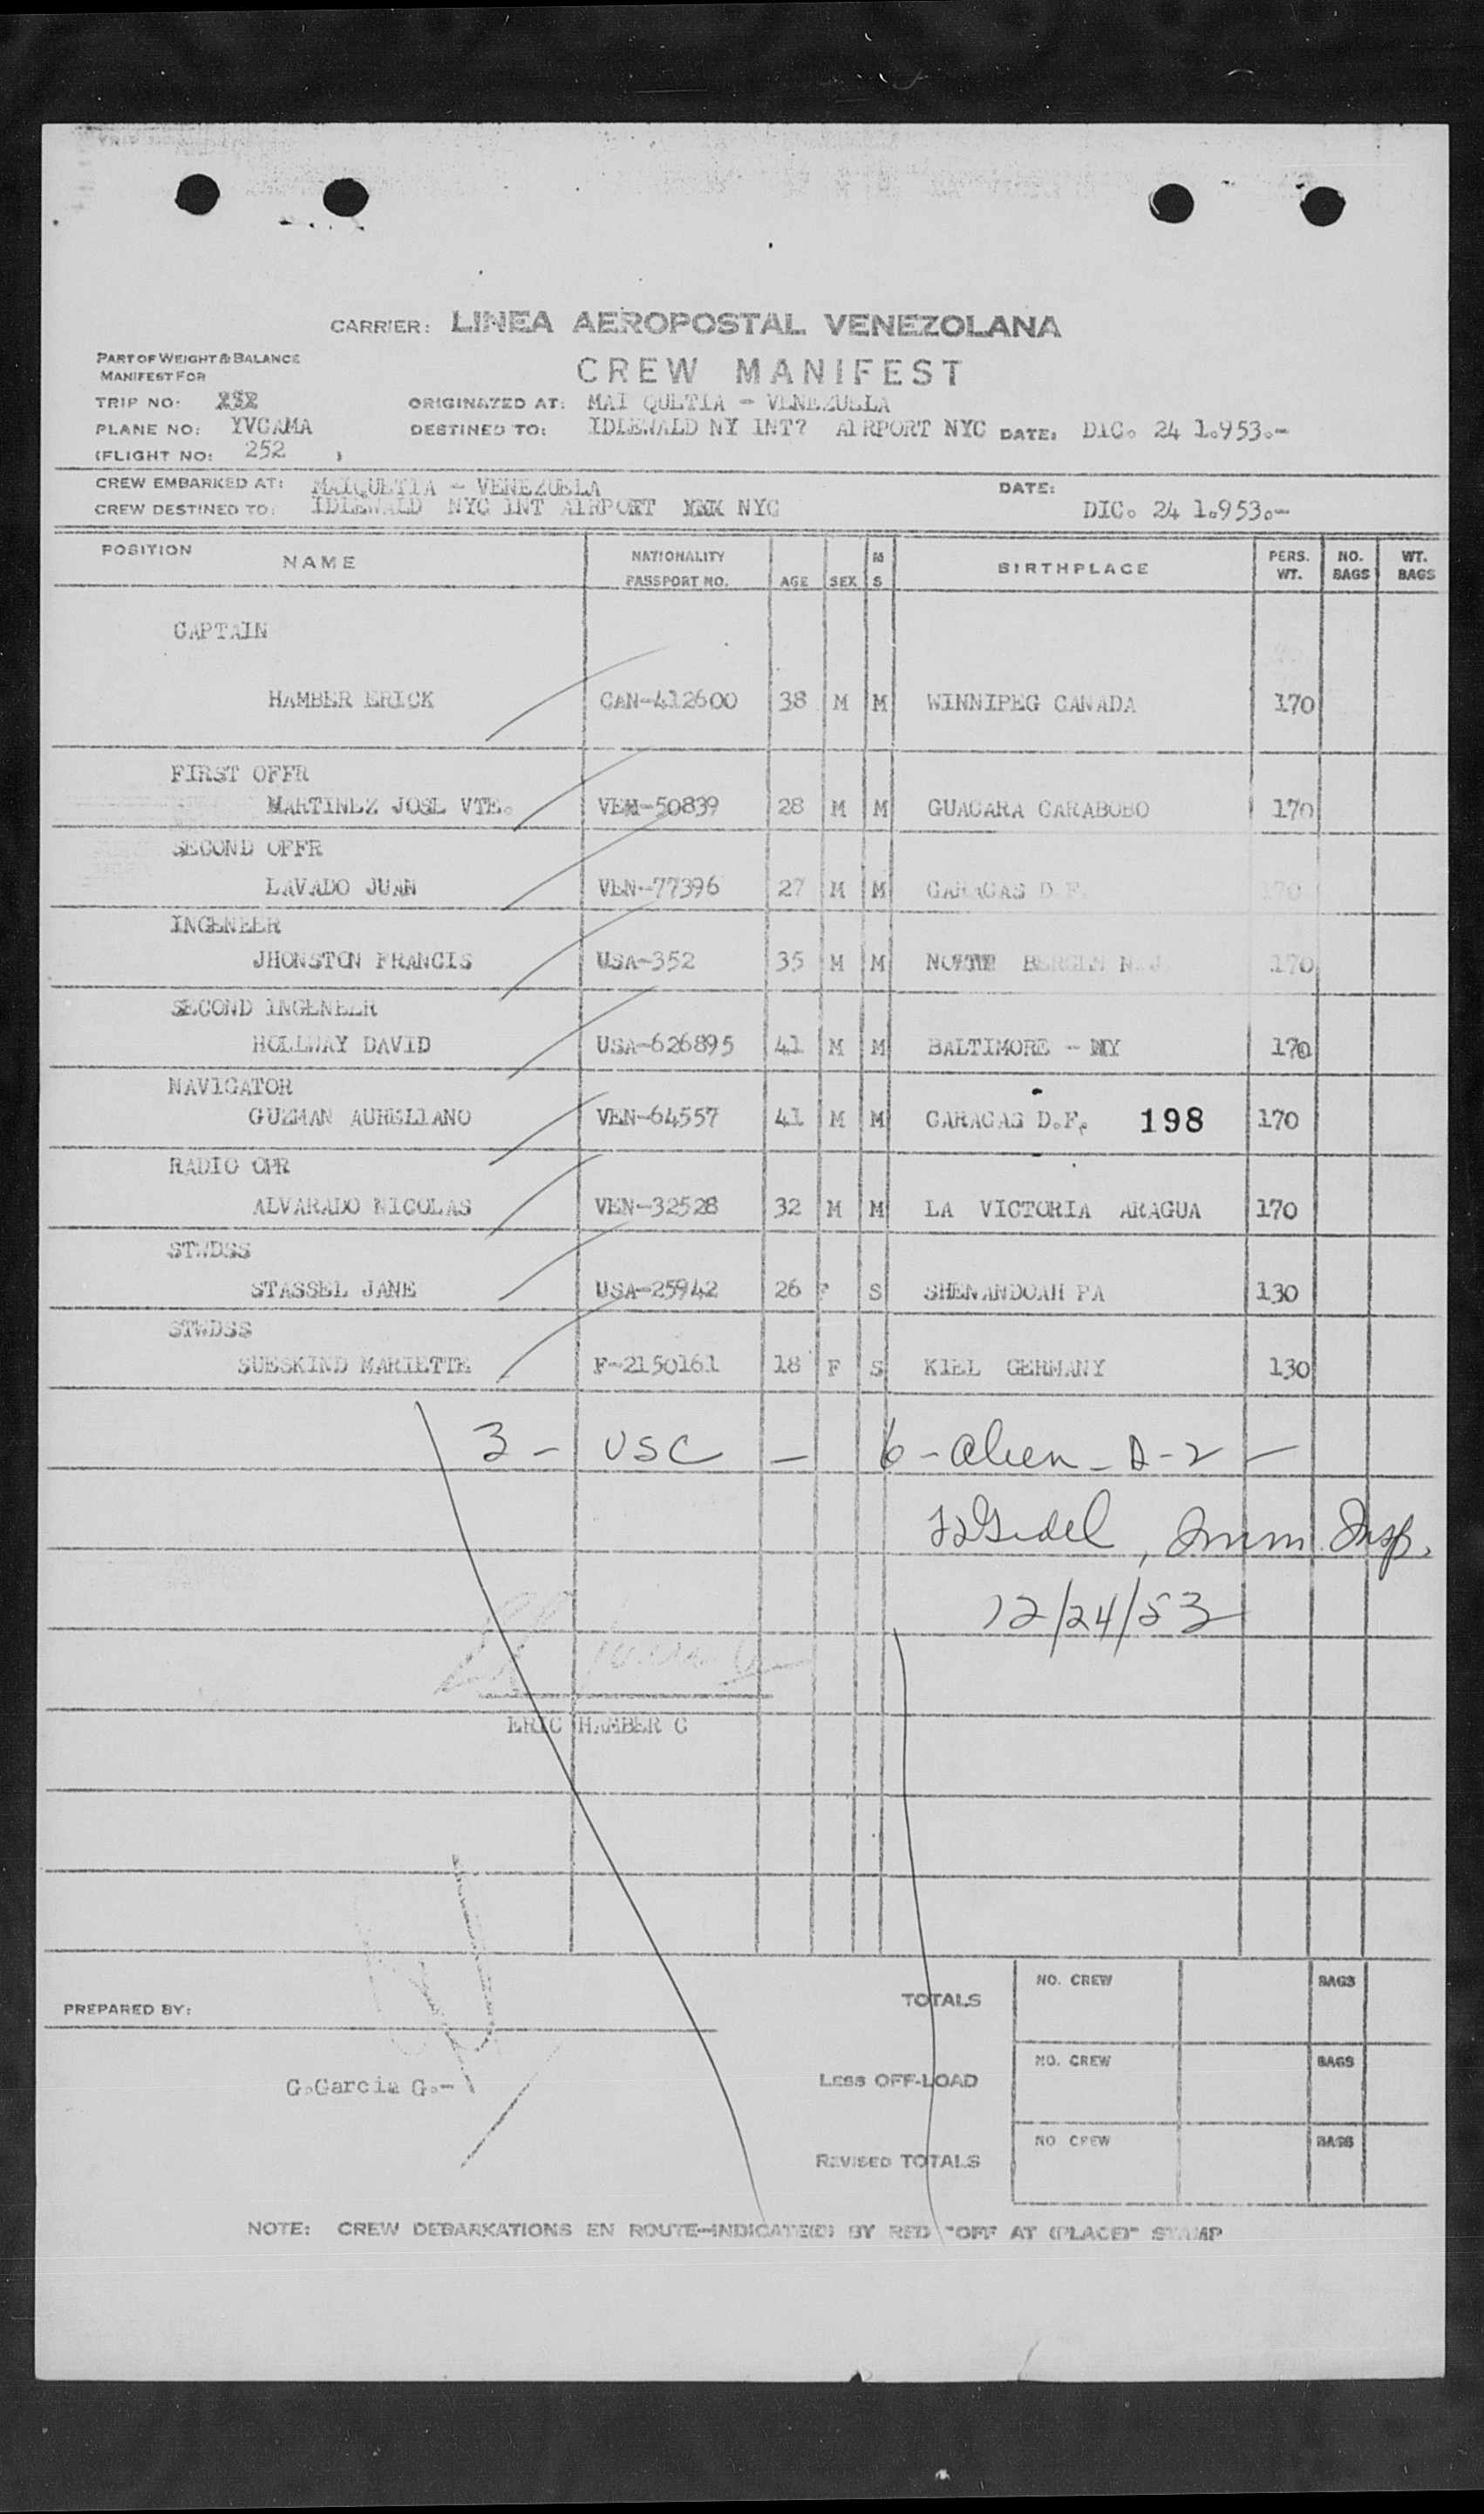 CARRIER: LINEA AEROPOSTAL VENEZOLANA
PART OF WEIGHT & BALANCE
MANIFEST FOR
CREW MANIFEST
TRIP NO: ORIGINATED AT: MAI QUETIA - VENEZUELA
PLANE NO: YVCAMA DESTINED TO: IDLEWALD NY INT? AIRPORT NYC DATE: DIC. 24 1.953.-
(FLIGHT NO: 252 )
CREW EMBARKED AT: MAIQUETIA - VENEZUELA DATE:
CREW DESTINED TO: IDLEWALD NYC INT AIRPORT NYC DIC. 24 1.953.-
POSITION NAME NATIONALITY PASSPORT NO. AGE SEX M S BIRTHPLACE PERS. WT. NO. BAGS WT. BAGS
CAPTAIN
HAMBER ERICK CAN-412600 38 M M WINNIPEG CANADA 170
FIRST OFFR
MARTINEZ JOSE VTE. VEN-50839 28 M M GUACARA CARABOBO 170
SECOND OFFR
LAVADO JUAN VEN-77396 27 M M CARACAS D.F. 170
INGENEER
JHONSTON FRANCIS USA-352 35 M M BERGEN N.J. 170
SECOND INGENEER
HOLLWAY DAVID USA-626895 41 M M BALTIMORE - 170
NAVIGATOR
GUZMAN AURELIANO VEN-64557 41 M M CARACAS D.F. 198 170
RADIO OPR
ALVARADO NICOLAS VEN-32528 32 M M LA VICTORIA ARAGUA 170
STWDSS
STASSEL JANE USA-25942 26 F S SHENANDOAH PA 130
STWDSS
SUESKIND MARIETTE F-2150161 18 F S KIEL GERMANY 130
3 - USC - 6 - alien - D-2 -
, Imm. Insp.
12/24/53
ERIC HAMBER C
PREPARED BY:
G.Garcia G.-
TOTALS NO. CREW BAGS
LESS OFF-LOAD NO. CREW BAGS
REVISED TOTALS NO CREW BAGS
NOTE: CREW DEBARKATIONS EN ROUTE-INDICATE(D) BY RED "OFF AT (PLACE)" STAMP